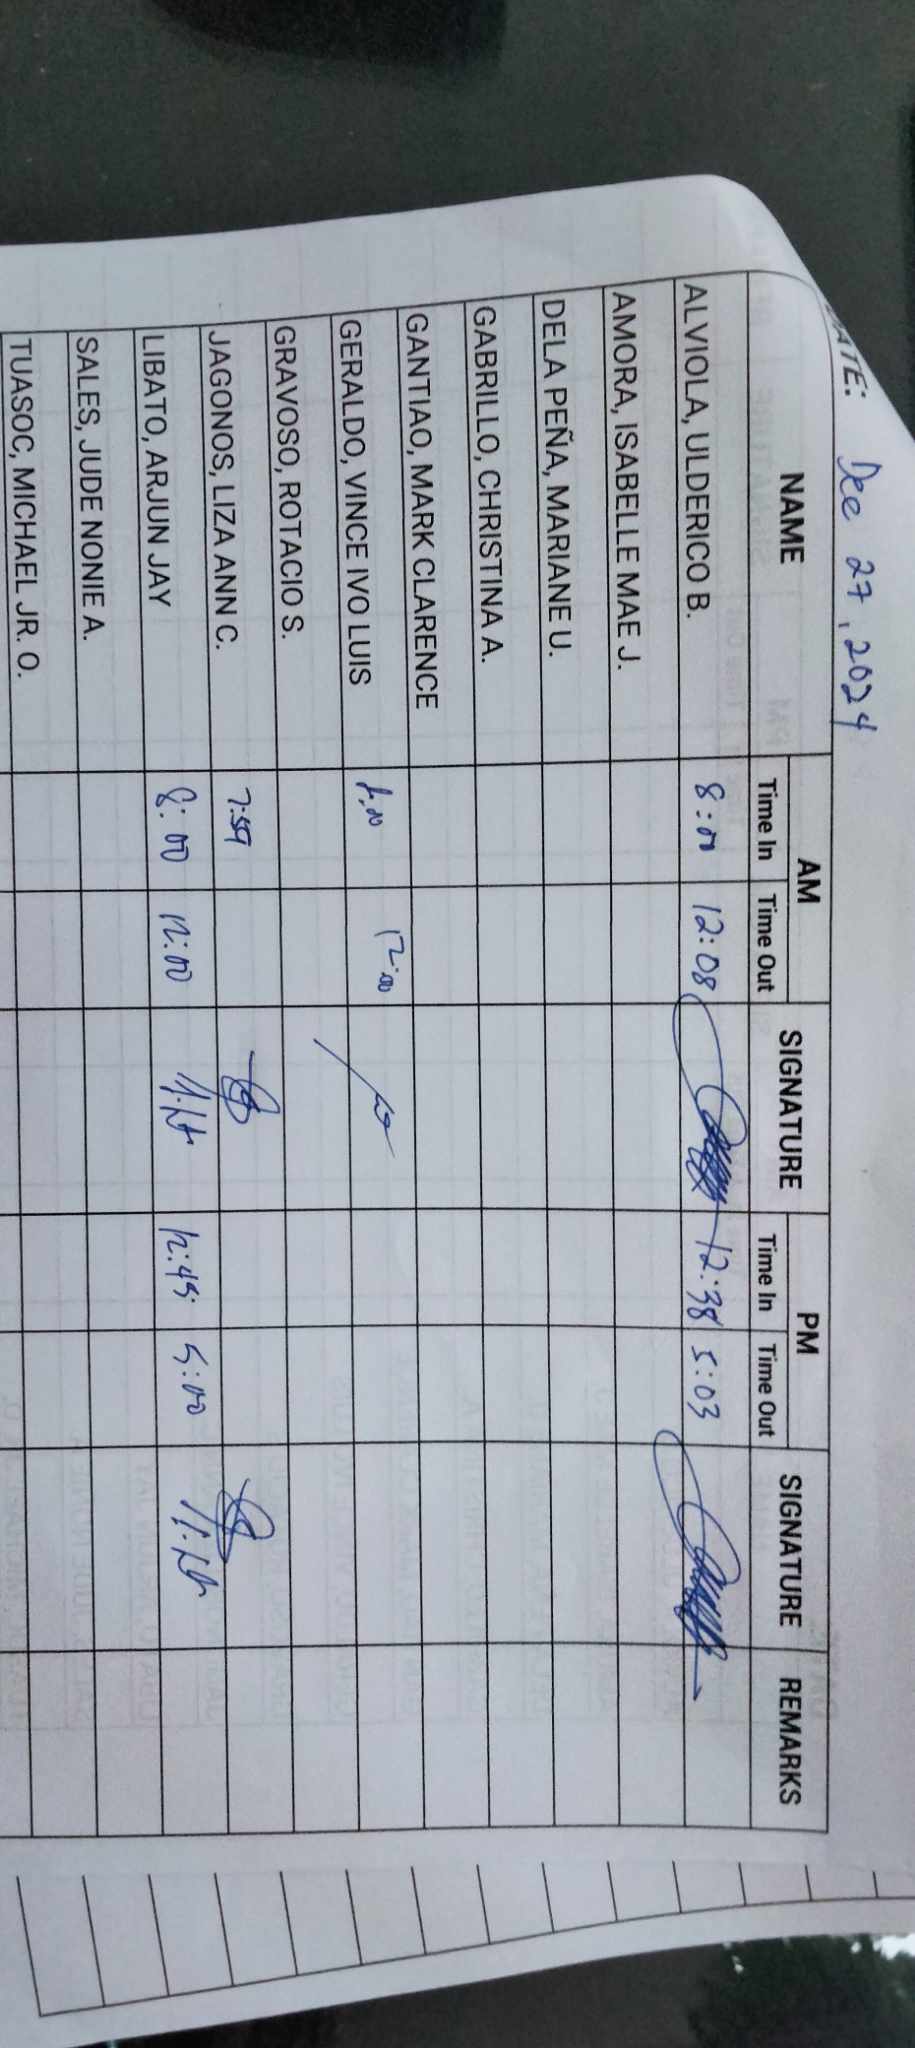 DATE: Dec 27, 2024
NAME AM SIGNATURE PM SIGNATURE REMARKS
Time In Time Out Time In Time Out
ALVIOLA, ULDERICO B. 8:00 12:08 12:38 5:03
AMORA, ISABELLE MAE J.
DELA PEÑA, MARIANE U.
GABRILLO, CHRISTINA A.
GANTIAO, MARK CLARENCE
GERALDO, VINCE IVO LUIS 8:00 12:00
GRAVOSO, ROTACIO S.
JAGONOS, LIZA ANN C. 7:59
LIBATO, ARJUN JAY 8:00 12:00 12:45 5:00
SALES, JUDE NONIE A.
TUASOC, MICHAEL JR. O.